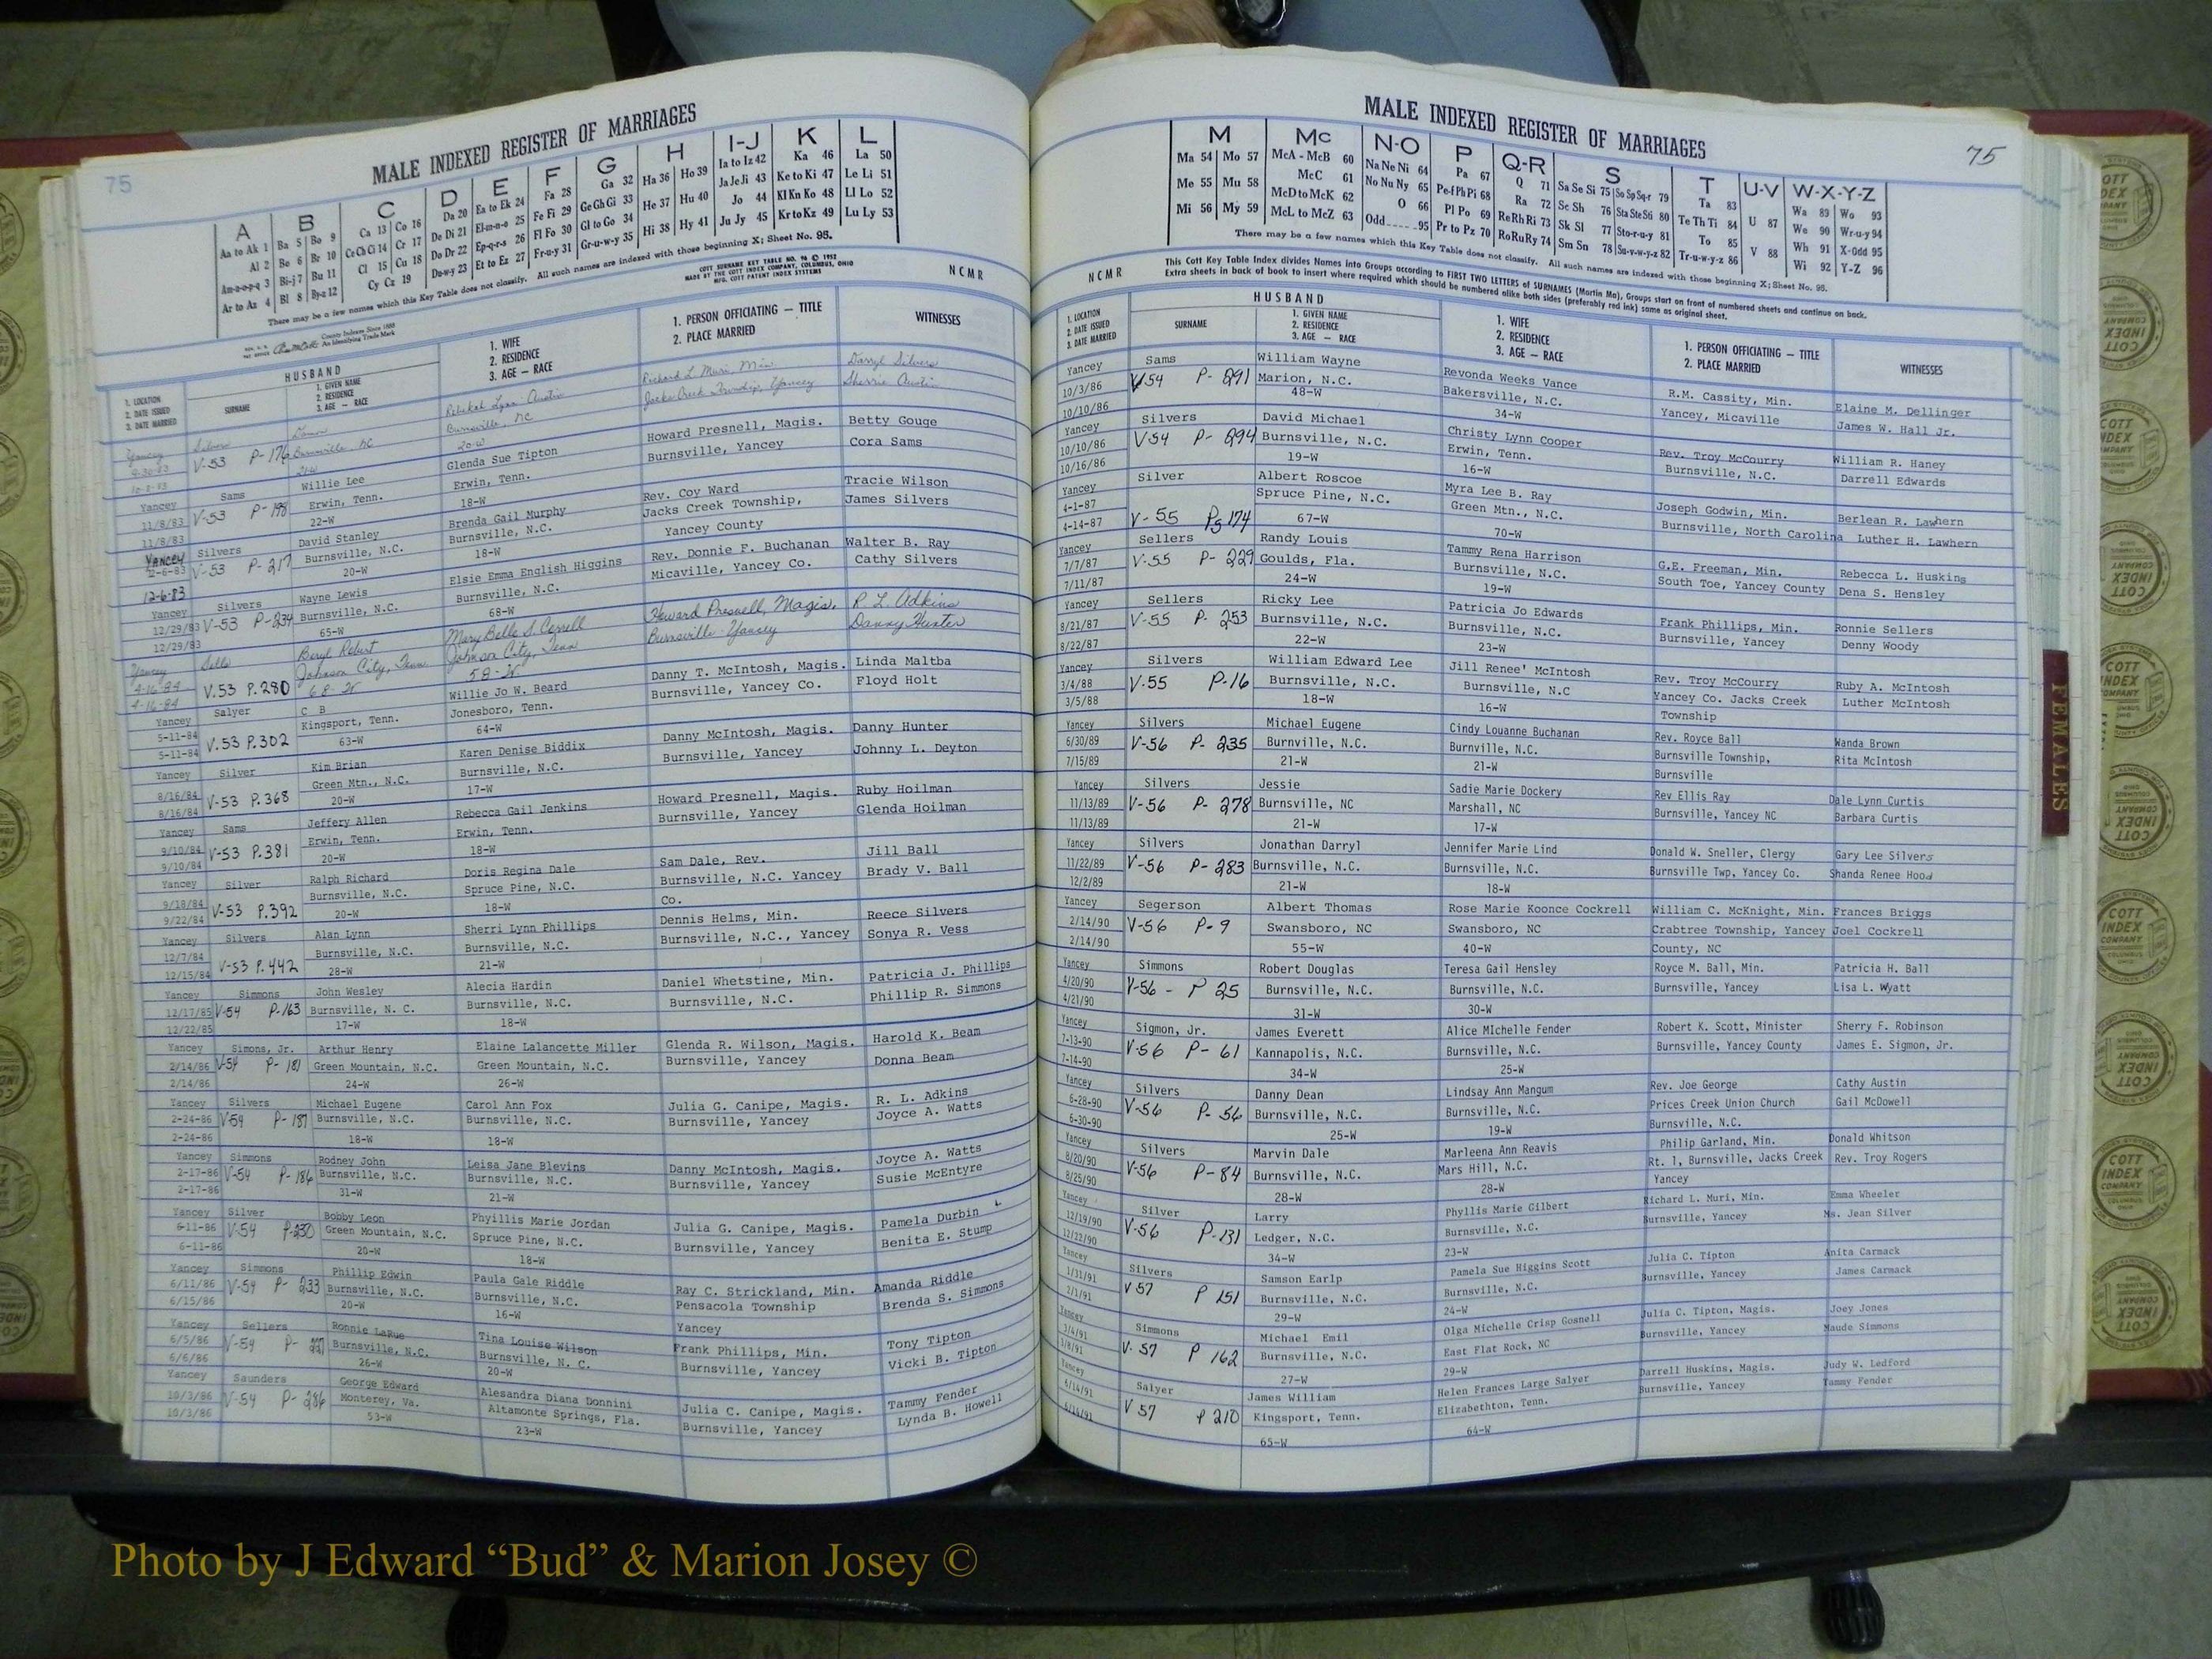 75
MALE INDEXED REGISTER OF MARRIAGES
A B C D E F G H I-J K L
Aa to Ak 1 Ba 5 Bo 9 Ca 13 Co 16 Da 20 Ea to Ek 24 Fa 28 Ga 32 Ha 36 Ho 39 Ia to Iz 42 Ka 46 La 50
Al 2 Be 6 Br 10 Ce Ch Ci 14 Cr 17 De Di 21 El-m-n-o 25 Fe Fi 29 Ge Gh Gi 33 He 37 Hu 40 Ja Je Ji 43 Ke to Ki 47 Le Li 51
Am-n-o-p-q 3 Bi-j 7 Bu 11 Cl 15 Cu 18 Do Dr 22 Ep-q-r-s 26 Fl Fo 30 Gl to Go 34 Hi 38 Hy 41 Jo 44 Kl Kn Ko 48 Ll Lo 52
Ar to Az 4 Bl 8 By-z 12 Cy Cz 19 Du-w-y 23 Et to Ez 27 Fr-u-y 31 Gr-u-w-y 35 Ju Jy 45 Kr to Kz 49 Lu Ly 53
There may be a few names which this Key Table does not classify. All such names are indexed with those beginning X; Sheet No. 95.
County Indexes Since 1888
An Identifying Trade Mark
COTT SURNAME KEY TABLE NO. 96 © 1952
MADE BY THE COTT INDEX COMPANY, COLUMBUS, OHIO
MFG. COTT PATENT INDEX SYSTEMS
NCMR
HUSBAND
1. LOCATION 2. DATE ISSUED 3. DATE MARRIED
SURNAME
1. GIVEN NAME 2. RESIDENCE 3. AGE — RACE
1. WIFE 2. RESIDENCE 3. AGE — RACE
1. PERSON OFFICIATING — TITLE 2. PLACE MARRIED
WITNESSES
Yancey Silvers Rebekah Lynn Austin Richard L. Muri, Min. Darryl Silvers
V-53 P-176 Burnsville NC Burnsville, NC Jacks Creek Township, Yancey Sherrie Austin
10-8-83 20-W
Yancey Sams Willie Lee Glenda Sue Tipton Howard Presnell, Magis. Betty Gouge
11/8/83 V-53 P-198 Erwin, Tenn. Erwin, Tenn. Burnsville, Yancey Cora Sams
11/8/83 22-W 18-W
Yancey Silvers David Stanley Brenda Gail Murphy Rev. Coy Ward Tracie Wilson
12-6-83 V-53 P-217 Burnsville, N.C. Burnsville, N.C. Jacks Creek Township, James Silvers
12-6-83 20-W 18-W Yancey County
Yancey Silvers Wayne Lewis Elsie Emma English Higgins Rev. Donnie F. Buchanan Walter B. Ray
12/29/83 V-53 P-234 Burnsville, N.C. Burnsville, N.C. Micaville, Yancey Co. Cathy Silvers
12/29/83 65-W 68-W
Yancey Sells Beryl Robert Mary Belle S. Correll Howard Presnell, Magis. R. L. Adkins
4-16-84 V.53 P.280 Johnson City, Tenn. Johnson City, Tenn Burnsville-Yancey Danny Hunter
4-16-84 68-W 58-W
Yancey Salyer C B Willie Jo W. Beard Danny T. McIntosh, Magis. Linda Maltba
5-11-84 V.53 P.302 Kingsport, Tenn. Jonesboro, Tenn. Burnsville, Yancey Co. Floyd Holt
5-11-84 63-W 64-W
Yancey Silver Kim Brian Karen Denise Biddix Danny McIntosh, Magis. Danny Hunter
8/16/84 V-53 P.368 Green Mtn., N.C. Burnsville, N.C. Burnsville, Yancey Johnny L. Deyton
8/16/84 20-W 17-W
Yancey Sams Jeffery Allen Rebecca Gail Jenkins Howard Presnell, Magis. Ruby Hoilman
9/10/84 V-53 P.381 Erwin, Tenn. Erwin, Tenn. Burnsville, Yancey Glenda Hoilman
9/10/84 20-W 18-W
Yancey Silver Ralph Richard Doris Regina Dale Sam Dale, Rev. Jill Ball
9/18/84 V-53 P.392 Burnsville, N.C. Spruce Pine, N.C. Burnsville, N.C. Yancey Brady V. Ball
9/22/84 20-W 18-W Co.
Yancey Silvers Alan Lynn Sherri Lynn Phillips Dennis Helms, Min. Reece Silvers
12/7/84 V-53 P.442 Burnsville, N.C. Burnsville, N.C. Burnsville, N.C., Yancey Sonya R. Vess
12/15/84 28-W 21-W
Yancey Simmons John Wesley Alecia Hardin Daniel Whetstine, Min. Patricia J. Phillips
12/17/85 V-54 P-163 Burnsville, N. C. Burnsville, N.C. Burnsville, N.C. Phillip R. Simmons
12/22/85 17-W 18-W
Yancey Simons, Jr. Arthur Henry Elaine Lalancette Miller Glenda R. Wilson, Magis. Harold K. Beam
2/14/86 V-54 P-181 Green Mountain, N.C. Green Mountain, N.C. Burnsville, Yancey Donna Beam
2/14/86 24-W 26-W
Yancey Silvers Michael Eugene Carol Ann Fox Julia G. Canipe, Magis. R. L. Adkins
2-24-86 V-54 P-187 Burnsville, N.C. Burnsville, N.C. Burnsville, Yancey Joyce A. Watts
2-24-86 18-W 18-W
Yancey Simmons Rodney John Leisa Jane Blevins Danny McIntosh, Magis. Joyce A. Watts
2-17-86 V-54 P-186 Burnsville, N.C. Burnsville, N.C. Burnsville, Yancey Susie McEntyre
2-17-86 31-W 21-W
Yancey Silver Bobby Leon Phyillis Marie Jordan Julia G. Canipe, Magis. Pamela Durbin
6-11-86 V-54 P-230 Green Mountain, N.C. Spruce Pine, N.C. Burnsville, Yancey Benita E. Stump
6-11-86 20-W 18-W
Yancey Simmons Phillip Edwin Paula Gale Riddle Ray C. Strickland, Min. Amanda Riddle
6/11/86 V-54 P-233 Burnsville, N.C. Burnsville, N.C. Pensacola Township Brenda S. Simmons
6/15/86 20-W 16-W Yancey
Yancey Sellers Ronnie LaRue Tina Louise Wilson Frank Phillips, Min. Tony Tipton
6/5/86 V-54 P- Burnsville, N.C. Burnsville, N. C. Burnsville, Yancey Vicki B. Tipton
6/6/86 26-W 20-W
Yancey Saunders George Edward Alesandra Diana Donnini Julia C. Canipe, Magis. Tammy Fender
10/3/86 V-54 P-286 Monterey, Va. Altamonte Springs, Fla. Burnsville, Yancey Lynda B. Howell
10/3/86 53-W 23-W
75
MALE INDEXED REGISTER OF MARRIAGES
M Mc N-O P Q-R S T U-V W-X-Y-Z
Ma 54 Mo 57 McA - McB 60 Na Ne Ni 64 Pa 67 Q 71 Sa Se Si 75 So Sp Sq-r 79 Ta 83 U 87 Wa 89 Wo 93
Me 55 Mu 58 McC 61 No Nu Ny 65 Pe-f Ph Pi 68 Ra 72 Sc Sh 76 Sta Ste Sti 80 Te Th Ti 84 V 88 We 90 Wr-u-y 94
Mi 56 My 59 McD to McK 62 O 66 Pl Po 69 Re Rh Ri 73 Sk Sl 77 Sto-r-u-y 81 To 85 Wh 91 X-Odd 95
McL to McZ 63 Odd 95 Pr to Pz 70 Ro Ru Ry 74 Sm Sn 78 Su-v-w-y-z 82 Tr-u-w-y-z 86 Wi 92 Y-Z 96
There may be a few names which this Key Table does not classify. All such names are indexed with those beginning X; Sheet No. 95.
NCMR
This Cott Key Table Index divides Names into Groups according to FIRST TWO LETTERS of SURNAMES (Martin Ma). Groups start on front of numbered sheets and continue on back.
Extra sheets in back of book to insert where required which should be numbered alike both sides (preferably red ink) same as original sheet.
HUSBAND
1. LOCATION 2. DATE ISSUED 3. DATE MARRIED
SURNAME
1. GIVEN NAME 2. RESIDENCE 3. AGE — RACE
1. WIFE 2. RESIDENCE 3. AGE — RACE
1. PERSON OFFICIATING — TITLE 2. PLACE MARRIED
WITNESSES
Yancey Sams William Wayne Revonda Weeks Vance R.M. Cassity, Min. Elaine M. Dellinger
10/3/86 V54 P-291 Marion, N.C. Bakersville, N.C. Yancey, Micaville James W. Hall Jr.
10/10/86 48-W 34-W
Yancey Silvers David Michael Christy Lynn Cooper Rev. Troy McCourry William R. Haney
10/10/86 V54 P-294 Burnsville, N.C. Erwin, Tenn. Burnsville, N.C. Darrell Edwards
10/16/86 19-W 16-W
Yancey Silver Albert Roscoe Myra Lee B. Ray Joseph Godwin, Min. Berlean R. Lawhern
4-1-87 V-55 Pg 174 Spruce Pine, N.C. Green Mtn., N.C. Burnsville, North Carolina Luther H. Lawhern
4-14-87 67-W 70-W
Yancey Sellers Randy Louis Tammy Rena Harrison G.E. Freeman, Min. Rebecca L. Huskins
7/7/87 V-55 P-229 Goulds, Fla. Burnsville, N.C. South Toe, Yancey County Dena S. Hensley
7/11/87 24-W 19-W
Yancey Sellers Ricky Lee Patricia Jo Edwards Frank Phillips, Min. Ronnie Sellers
8/21/87 V-55 P. 253 Burnsville, N.C. Burnsville, N.C. Burnsville, Yancey Denny Woody
8/22/87 22-W 23-W
Yancey Silvers William Edward Lee Jill Renee' McIntosh Rev. Troy McCourry Ruby A. McIntosh
3/4/88 V-55 P-16 Burnsville, N.C. Burnsville, N.C Yancey Co. Jacks Creek Luther McIntosh
3/5/88 18-W 16-W Township
Yancey Silvers Michael Eugene Cindy Louanne Buchanan Rev. Royce Ball Wanda Brown
6/30/89 V-56 P-235 Burnville, N.C. Burnville, N.C. Burnsville Township, Rita McIntosh
7/15/89 21-W 21-W Burnsville
Yancey Silvers Jessie Sadie Marie Dockery Rev Ellis Ray Dale Lynn Curtis
11/13/89 V-56 P-278 Burnsville, NC Marshall, NC Burnsville, Yancey NC Barbara Curtis
11/13/89 21-W 17-W
Yancey Silvers Jonathan Darryl Jennifer Marie Lind Donald W. Sneller, Clergy Gary Lee Silvers
11/22/89 V-56 P-283 Burnsville, N.C. Burnsville, N.C. Burnsville Twp, Yancey Co. Shanda Renee Hood
12/2/89 21-W 18-W
Yancey Segerson Albert Thomas Rose Marie Koonce Cockrell William C. McKnight, Min. Frances Briggs
2/14/90 V-56 P-9 Swansboro, NC Swansboro, NC Crabtree Township, Yancey Joel Cockrell
2/14/90 55-W 40-W County, NC
Yancey Simmons Robert Douglas Teresa Gail Hensley Royce M. Ball, Min. Patricia H. Ball
4/20/90 V-56 - P 25 Burnsville, N.C. Burnsville, N.C. Burnsville, Yancey Lisa L. Wyatt
4/21/90 31-W 30-W
Yancey Sigmon, Jr. James Everett Alice MIchelle Fender Robert K. Scott, Minister Sherry F. Robinson
7-13-90 V-56 P-61 Kannapolis, N.C. Burnsville, N.C. Burnsville, Yancey County James E. Sigmon, Jr.
7-14-90 34-W 25-W
Yancey Silvers Danny Dean Lindsay Ann Mangum Rev. Joe George Cathy Austin
6-28-90 V-56 P-56 Burnsville, N.C. Burnsville, N.C. Prices Creek Union Church Gail McDowell
6-30-90 25-W 19-W Burnsville, N.C.
Yancey Silvers Marvin Dale Marleena Ann Reavis Philip Garland, Min. Donald Whitson
8/20/90 V-56 P-84 Burnsville, N.C. Mars Hill, N.C. Rt. 1, Burnsville, Jacks Creek Rev. Troy Rogers
8/25/90 28-W 28-W Yancey
Yancey Silver Larry Phyllis Marie Gilbert Richard L. Muri, Min. Emma Wheeler
12/19/90 V-56 P-131 Ledger, N.C. Burnsville, N.C. Burnsville, Yancey Ms. Jean Silver
12/22/90 34-W 23-W
Yancey Silvers Samson Earlp Pamela Sue Higgins Scott Julia C. Tipton Anita Carmack
1/31/91 V 57 P 151 Burnsville, N.C. Burnsville, N.C. Burnsville, Yancey James Carmack
2/1/91 29-W 24-W
Yancey Simmons Michael Emil Olga Michelle Crisp Gosnell Julia C. Tipton, Magis. Joey Jones
3/4/91 V. 57 P 162 Burnsville, N.C. East Flat Rock, NC Burnsville, Yancey Maude Simmons
3/8/91 27-W 29-W
Yancey Salyer James William Helen Frances Large Salyer Darrell Huskins, Magis. Judy W. Ledford
6/14/91 V 57 P 210 Kingsport, Tenn. Elizabethton, Tenn. Burnsville, Yancey Tammy Fender
65-W 64-W
FEMALES
COTT INDEX COMPANY
Photo by J Edward “Bud” & Marion Josey ©